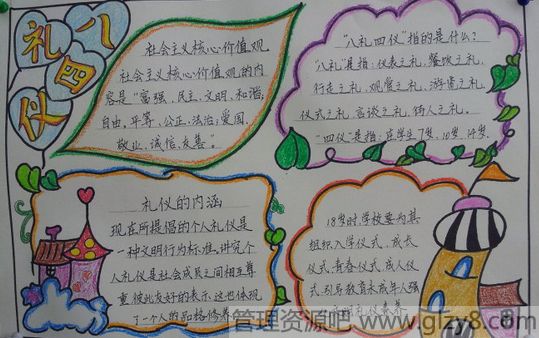 八
礼
四
仪
社会主义核心价值观
社会主义核心价值观的内
容是“富强、民主、文明、和谐,
自由、平等、公正、法治;爱国、
敬业、诚信、友善”。
“八礼四仪”指的是什么?
“八礼”是指:仪表之礼、餐饮之礼、
行走之礼、观赏之礼、游览之礼、
仪式之礼、言谈之礼、待人之礼。
“四仪”是指:在学生7岁、10岁、14岁、
礼仪的内涵
现在所提倡的个人礼仪是
一种文明行为标准,讲究个
人礼仪是社会成员之间相互尊
重、彼此友好的表示,这也体现
了一个人的品格修养
18岁时,学校要为其
组织入学仪式、成长
仪式、青春仪式、成人仪
式,引导教育未成年人强
礼仪素养
管理资源吧 www.glzy8.com